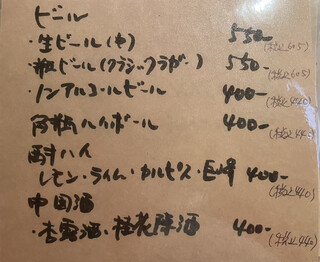 ビール
・生ビール(中) 550- (税込605)
・瓶ビール(クラシックラガー) 550- (税込605)
ノンアルコールビール 400- (税込440)
角瓶ハイボール 400- (税込440)
酎ハイ
レモン・ライム・カルピス・巨峰 400- (税込440)
中国酒
・杏露酒・桂花陳酒 400- (税込440)